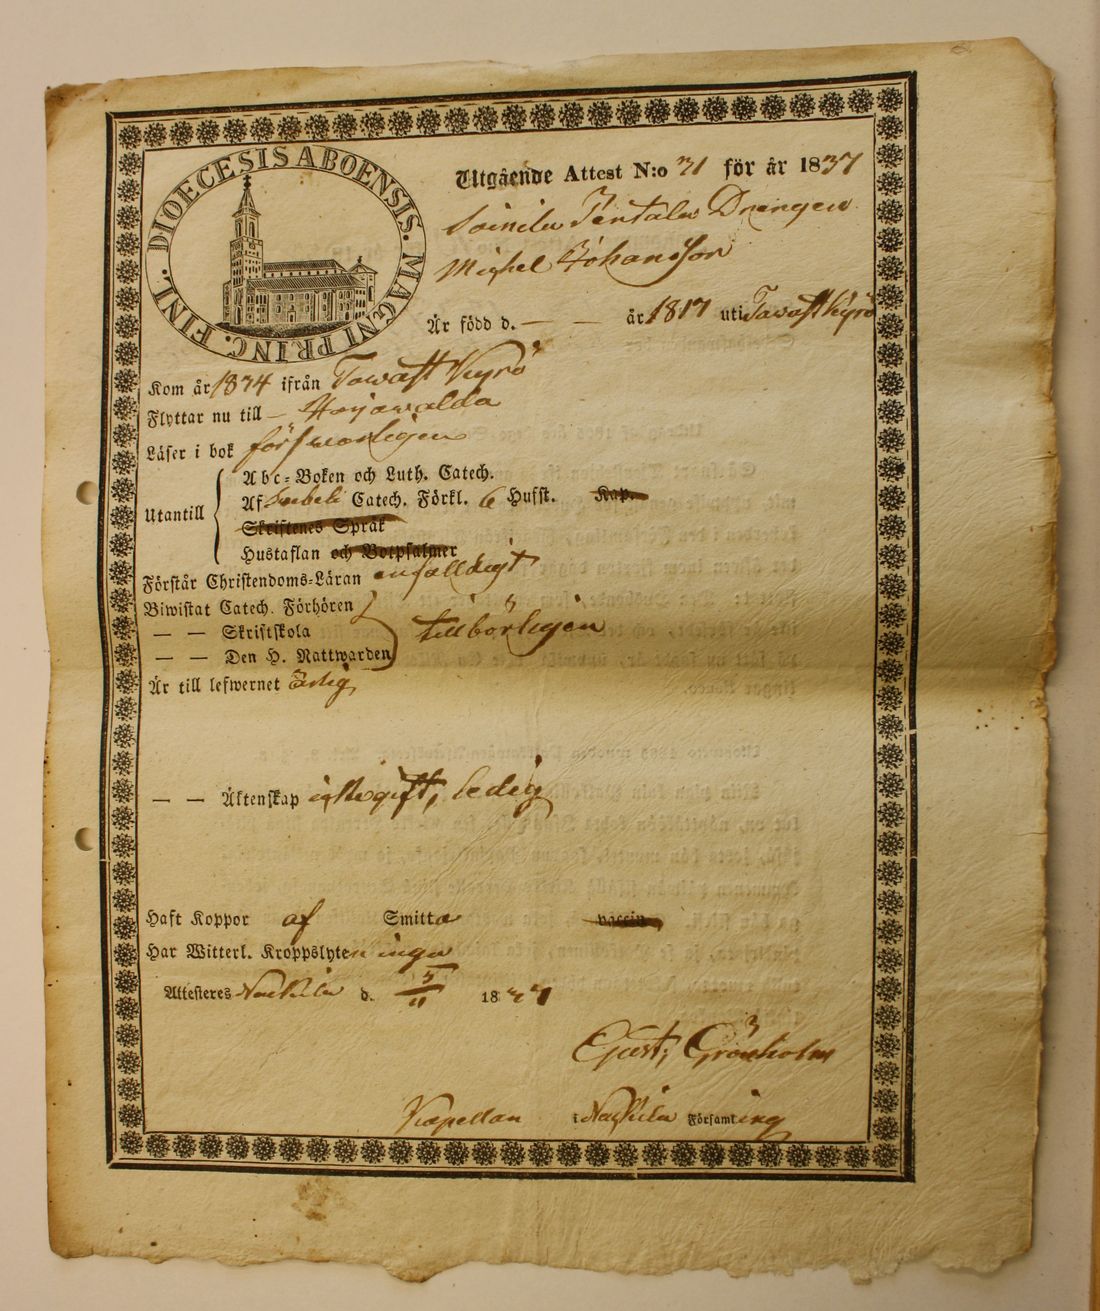 DIOECESIS ABOENSIS. MAGNI PRINC. FINL.
Utgående Attest N:o 31 för år 1837
Soinila Pentala Drengen
Michel Johansson
Är född d. — — år 1817 uti Tavastkyrö
Kom år 1834 ifrån Tavastkyrö
Flyttar nu till - Harjavalda
Läser i bok försvarligen
Utantill
Abc-Boken och Luth. Catech.
Af Svebeli Catech. Förkl. 6 Hufst. Kap.
Skriftenes Språk
Hustaflan och Botpsalmer
Förstår Christendoms-Läran enfalldigt
Biwistat Catech. Förhören
— — Skriftskola tillbörligen
— — Den H. Nattwarden
Är till lefwernet ärlig
— — Äktenskap icke gift, ledig
Haft Koppor af Smitta vaccin
Har Witterl. Kroppslyten inga
Attesteres Nackila d. 5/11 1837
Gust. Grönholm
Kapellan i Nackila Församling